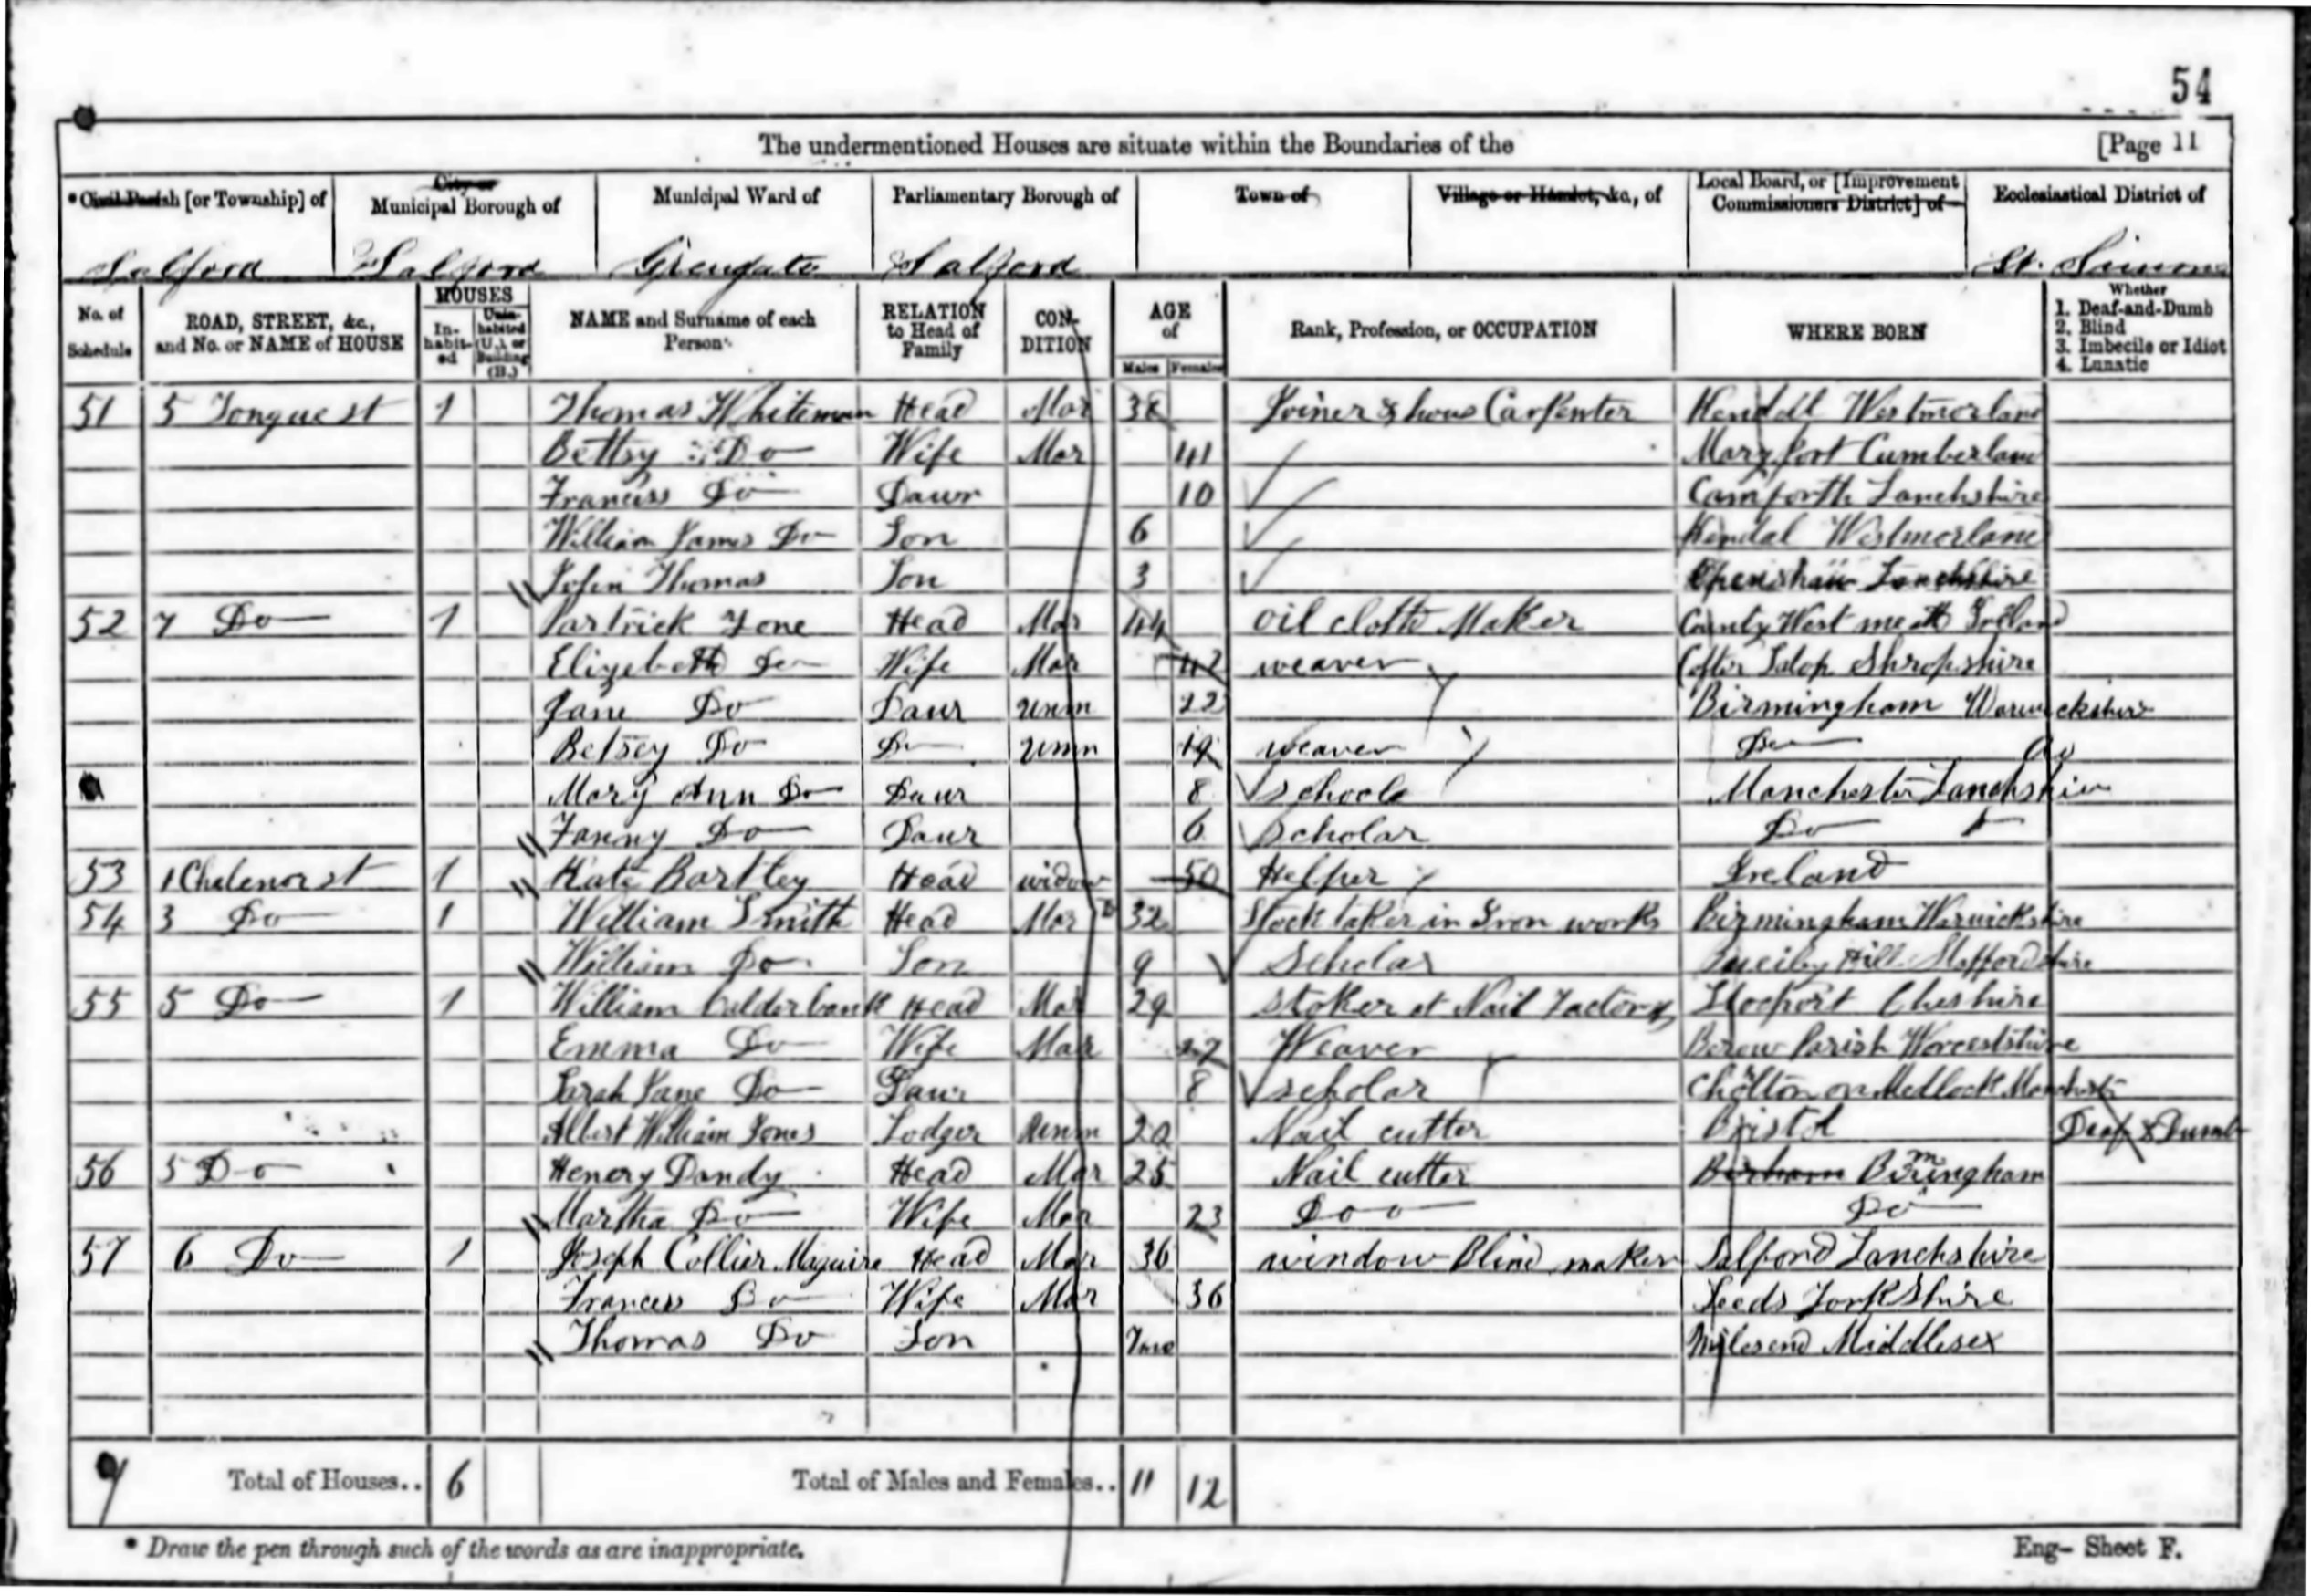 54
The undermentioned Houses are situate within the Boundaries of the [Page 11
*Civil Parish [or Township] of
City or Municipal Borough of
Municipal Ward of
Parliamentary Borough of
Town of
Village or Hamlet, &c., of
Local Board, or [Improvement Commissioners District] of
Ecclesiastical District of
Salford Salford Grengate Salford St. Simons
No. of Schedule
ROAD, STREET, &c., and No. or NAME of HOUSE
HOUSES
In-habit-ed
Unin-habited (U.), or Building (B.)
NAME and Surname of each Person
RELATION to Head of Family
CON-DITION
AGE of
Males Females
Rank, Profession, or OCCUPATION
WHERE BORN
Whether
1. Deaf-and-Dumb
2. Blind
3. Imbecile or Idiot
4. Lunatic
51 5 Tongue st 1 Thomas Whiteman Head Mar 38 Joiner & hous Carpenter Kendall Westmorland
Bettsy Do Wife Mar 41 Maryport Cumberland
Franciss Do Dawr 10 Carnforth Lanchshire
William James Do Son 6 Kendal Westmorland
John Thomas Son 3 Openshaw Lanchshire
52 7 Do 1 Partrick Tone Head Mar 44 oil cloth Maker County West meath Ireland
Elizebeth Do Wife Mar 42 weaver Salop Shropshire
Jane Do Daur unm 22 Birmingham Warwickshire
Betsey Do Do unm 19 weaver Do Do
Mary Ann Do Daur 8 schoola Manchester Lanchshire
Fanny Do Daur 6 scholar Do
53 1 Chalenor st 1 Kate Bartley Head widow 50 Helper Ireland
54 3 Do 1 William Smith Head Mar 32 Stock taker in Iron works Birmingham Warwickshire
William Do Son 9 Scholar Hill Staffordshire
55 5 Do 1 William Calderbank Head Mar 29 stoker at Nail Factory Stocport Cheshire
Emma Do Wife Mar 27 Weaver Berow Parish Worcestshire
Sarah Jane Do Daur 8 scholar Cholton on Medlock Manchester
Albert William Jones Lodger unm 20 Nail cutter Bristol Deaf & Dumb
56 5 Do Henery Dandy Head Mar 25 Nail cutter Birham Birmingham
Martha Do Wife Mar 23 Do Do
57 6 Do 1 Joseph Collier Maguire Head Mar 36 window Blind maker Salford Lanchshire
Frances Do Wife Mar 36 Leeds YorkShire
Thomas Do Son 7mo Milesend Middlesex
Total of Houses.. 6 Total of Males and Females.. 11 12
* Draw the pen through such of the words as are inappropriate.
Eng- Sheet F.